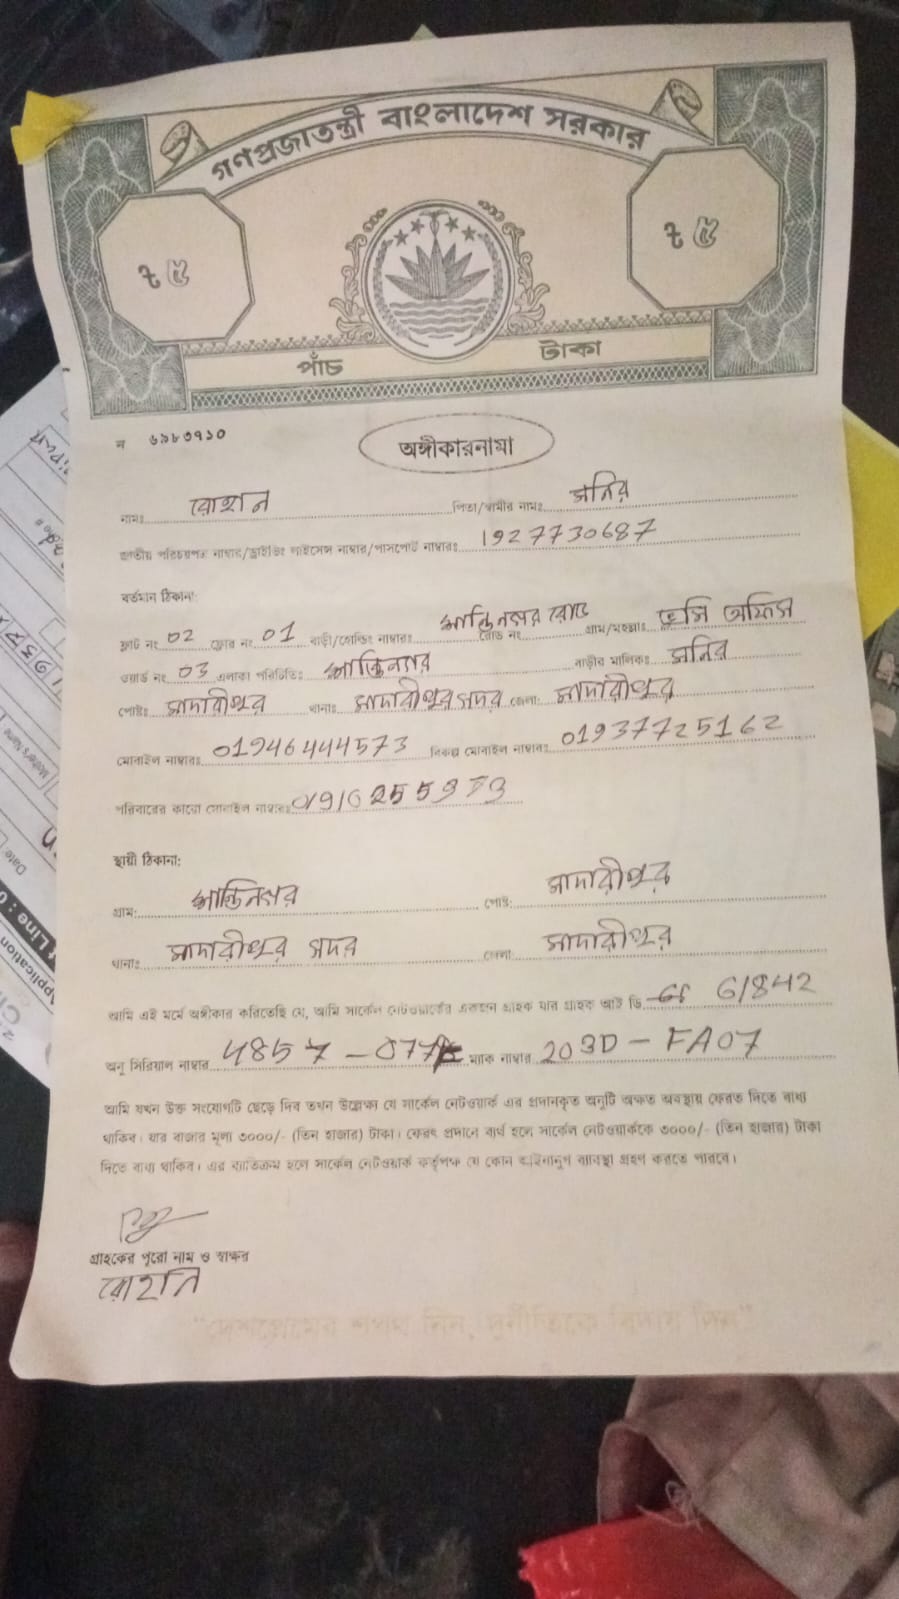 গণপ্রজাতন্ত্রী বাংলাদেশ সরকার
৳ ৫ ৳ ৫
পাঁচ টাকা
ন ৬৯৮৩৭১০
অঙ্গীকারনামা
নামঃ রোহান পিতা/স্বামীর নামঃ মনির
জাতীয় পরিচয়পত্র নাম্বার/ড্রাইভিং লাইসেন্স নাম্বার/পাসপোর্ট নাম্বারঃ 1927730687
বর্তমান ঠিকানা:
ফ্লাট নং 02 ফ্লোর নং 01 বাড়ী/হোল্ডিং নাম্বারঃ শান্তিনগর রোড রোড নং গ্রাম/মহল্লাঃ ভূমি অফিস
ওয়ার্ড নং 03 এলাকা পরিচিতিঃ শান্তিনগর বাড়ীর মালিকঃ মনির
পোষ্টঃ মাদারীপুর থানাঃ মাদারীপুর সদর জেলা: মাদারীপুর
মোবাইল নাম্বারঃ 01946444573 বিকল্প মোবাইল নাম্বারঃ 01937725162
পরিবারের কারো মোবাইল নাম্বারঃ
স্থায়ী ঠিকানা:
গ্রাম: শান্তিনগর পোষ্ট: মাদারীপুর
থানাঃ মাদারীপুর সদর জেলা মাদারীপুর
আমি এই মর্মে অঙ্গীকার করিতেছি যে, আমি সার্কেল নেটওয়ার্কের একজন গ্রাহক যার গ্রাহক আই ডি 61842
অনু সিরিয়াল নাম্বার ম্যাক নাম্বার 203D - FA07
আমি যখন উক্ত সংযোগটি ছেড়ে দিব তখন উল্লেক্ষ্য যে সার্কেল নেটওয়ার্ক এর প্রদানকৃত অনুটি অক্ষত অবস্থায় ফেরত দিতে বাধ্য
থাকিব। যার বাজার মূল্য ৩০০০/- (তিন হাজার) টাকা। ফেরৎ প্রদানে ব্যর্থ হলে সার্কেল নেটওয়ার্ককে ৩০০০/- (তিন হাজার) টাকা
দিতে বাধ্য থাকিব। এর ব্যতিক্রম হলে সার্কেল নেটওয়ার্ক কর্তৃপক্ষ যে কোন আইনানুগ ব্যবস্থা গ্রহণ করতে পারবে।
গ্রাহকের পুরো নাম ও স্বাক্ষর
রোহান
"দেশপ্রেমের শপথ নিন, দুর্নীতিকে বিদায় দিন"